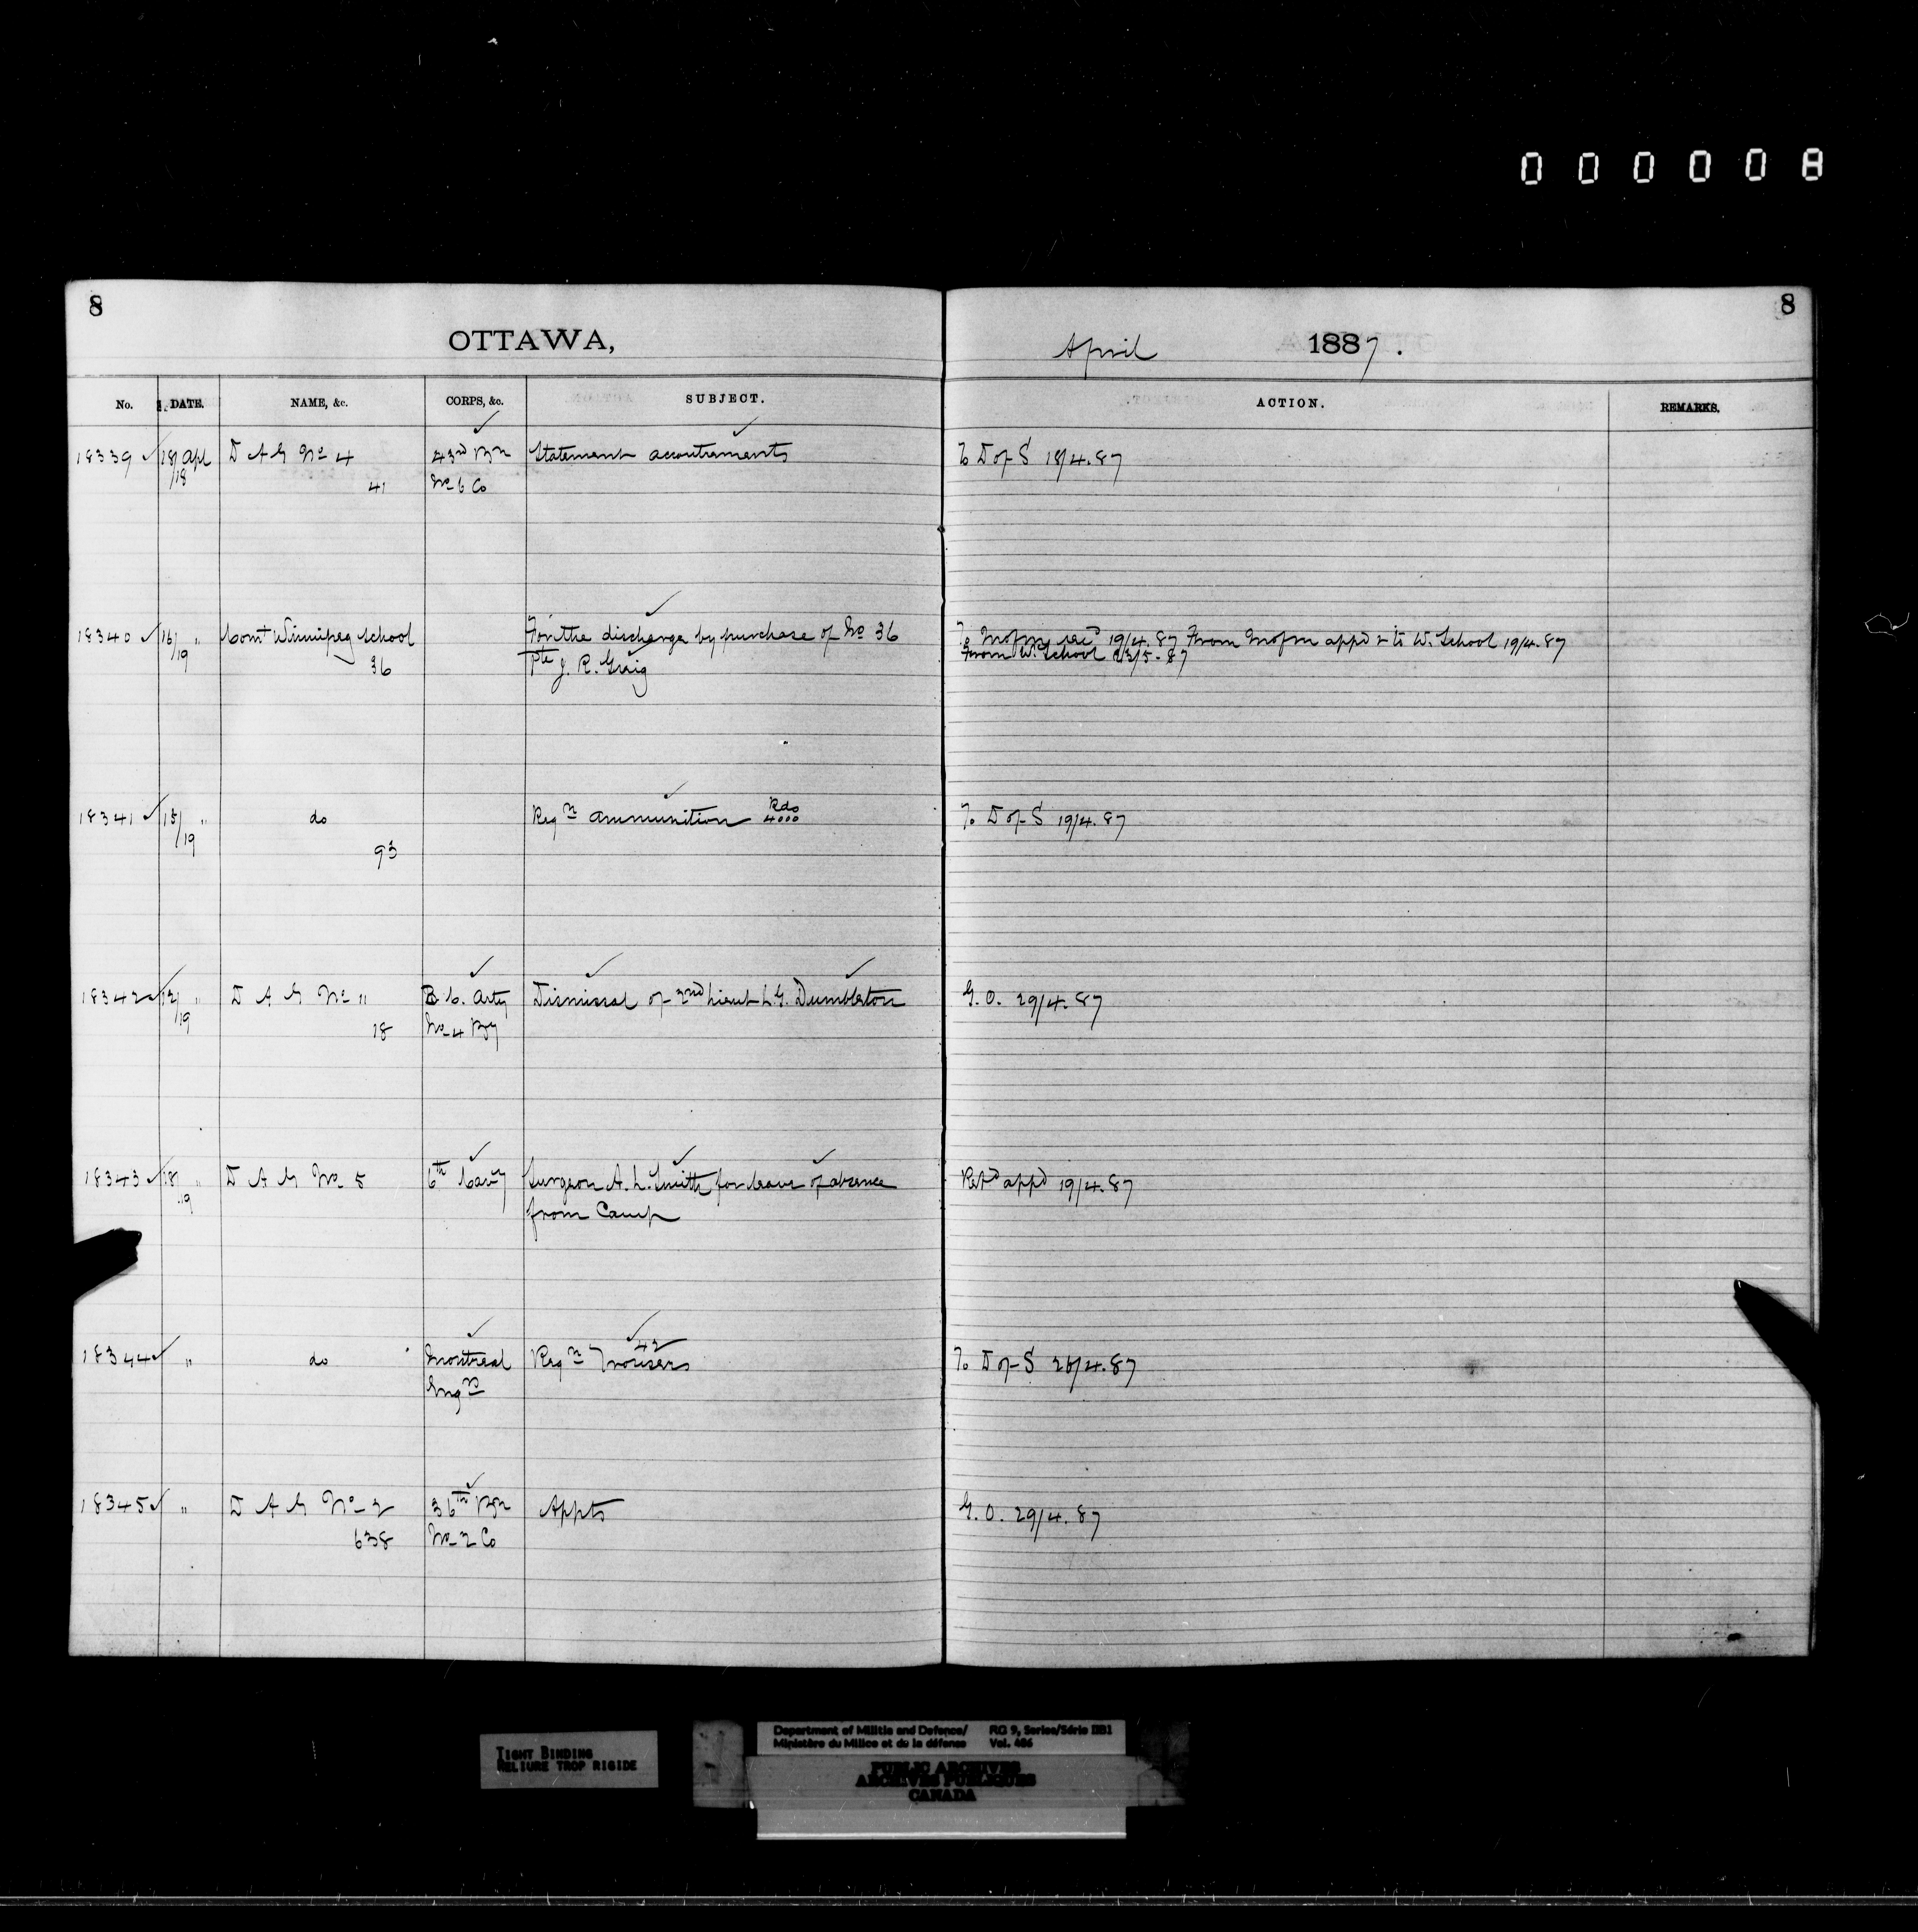 000008
8
8
OTTAWA,
April 1887.
No. DATE. NAME, &c. CORPS, &c. SUBJECT. ACTION. REMARKS.
18339 ✓ 18/18 Apl D A G No 4 43rd Bn Statement accoutrements To D of S 18/4.87
41 No 6 Co
18340 ✓ 16/19 " Comt Winnipeg School For the discharge by purchase of No 36 To Mofm 19/4.87 From Mofm appd & to W. School 19/4.87
36 Pte J. R. Greig From W. School 23/5-87
18341 ✓ 15/19 " do Reqn ammunition Rds 4000 To D of S 19/4.87
93
18342 ✓ 12/19 " D A G No 11 B.C. Arty Dismissal of 2nd Lieut L.G. Dumbleton G.O. 29/4.87
18 No 4 By
18343 ✓ 18/19 " D A G No 5 6th Cavy Surgeon A. L. Smith for leave of absence Retd appd 19/4.87
from Camp
18344 ✓ " do Montreal Reqn 42 Trousers To D of S 26/4.87
Engrs
18345 ✓ " D A G No 2 36th Bn Appts G.O. 29/4.87
638 No 2 Co
TIGHT BINDING
RELIURE TROP RIGIDE
Department of Militia and Defence/ RG 9, Series/Série IIB1
Ministère du Milice et de la défense Vol. 406
PUBLIC ARCHIVES
ARCHIVES PUBLIQUES
CANADA